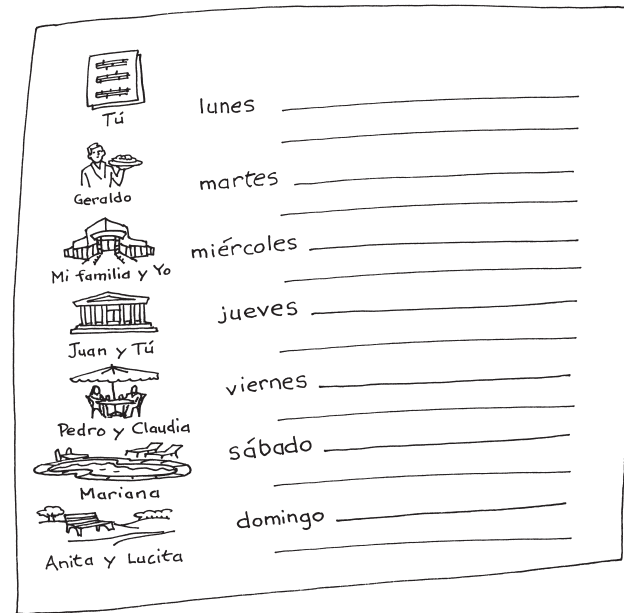 Tú
lunes
Geraldo
martes
Mi familia y Yo
miércoles
Juan y Tú
jueves
Pedro y Claudia
viernes
Mariana
sábado
Anita y Lucita
domingo